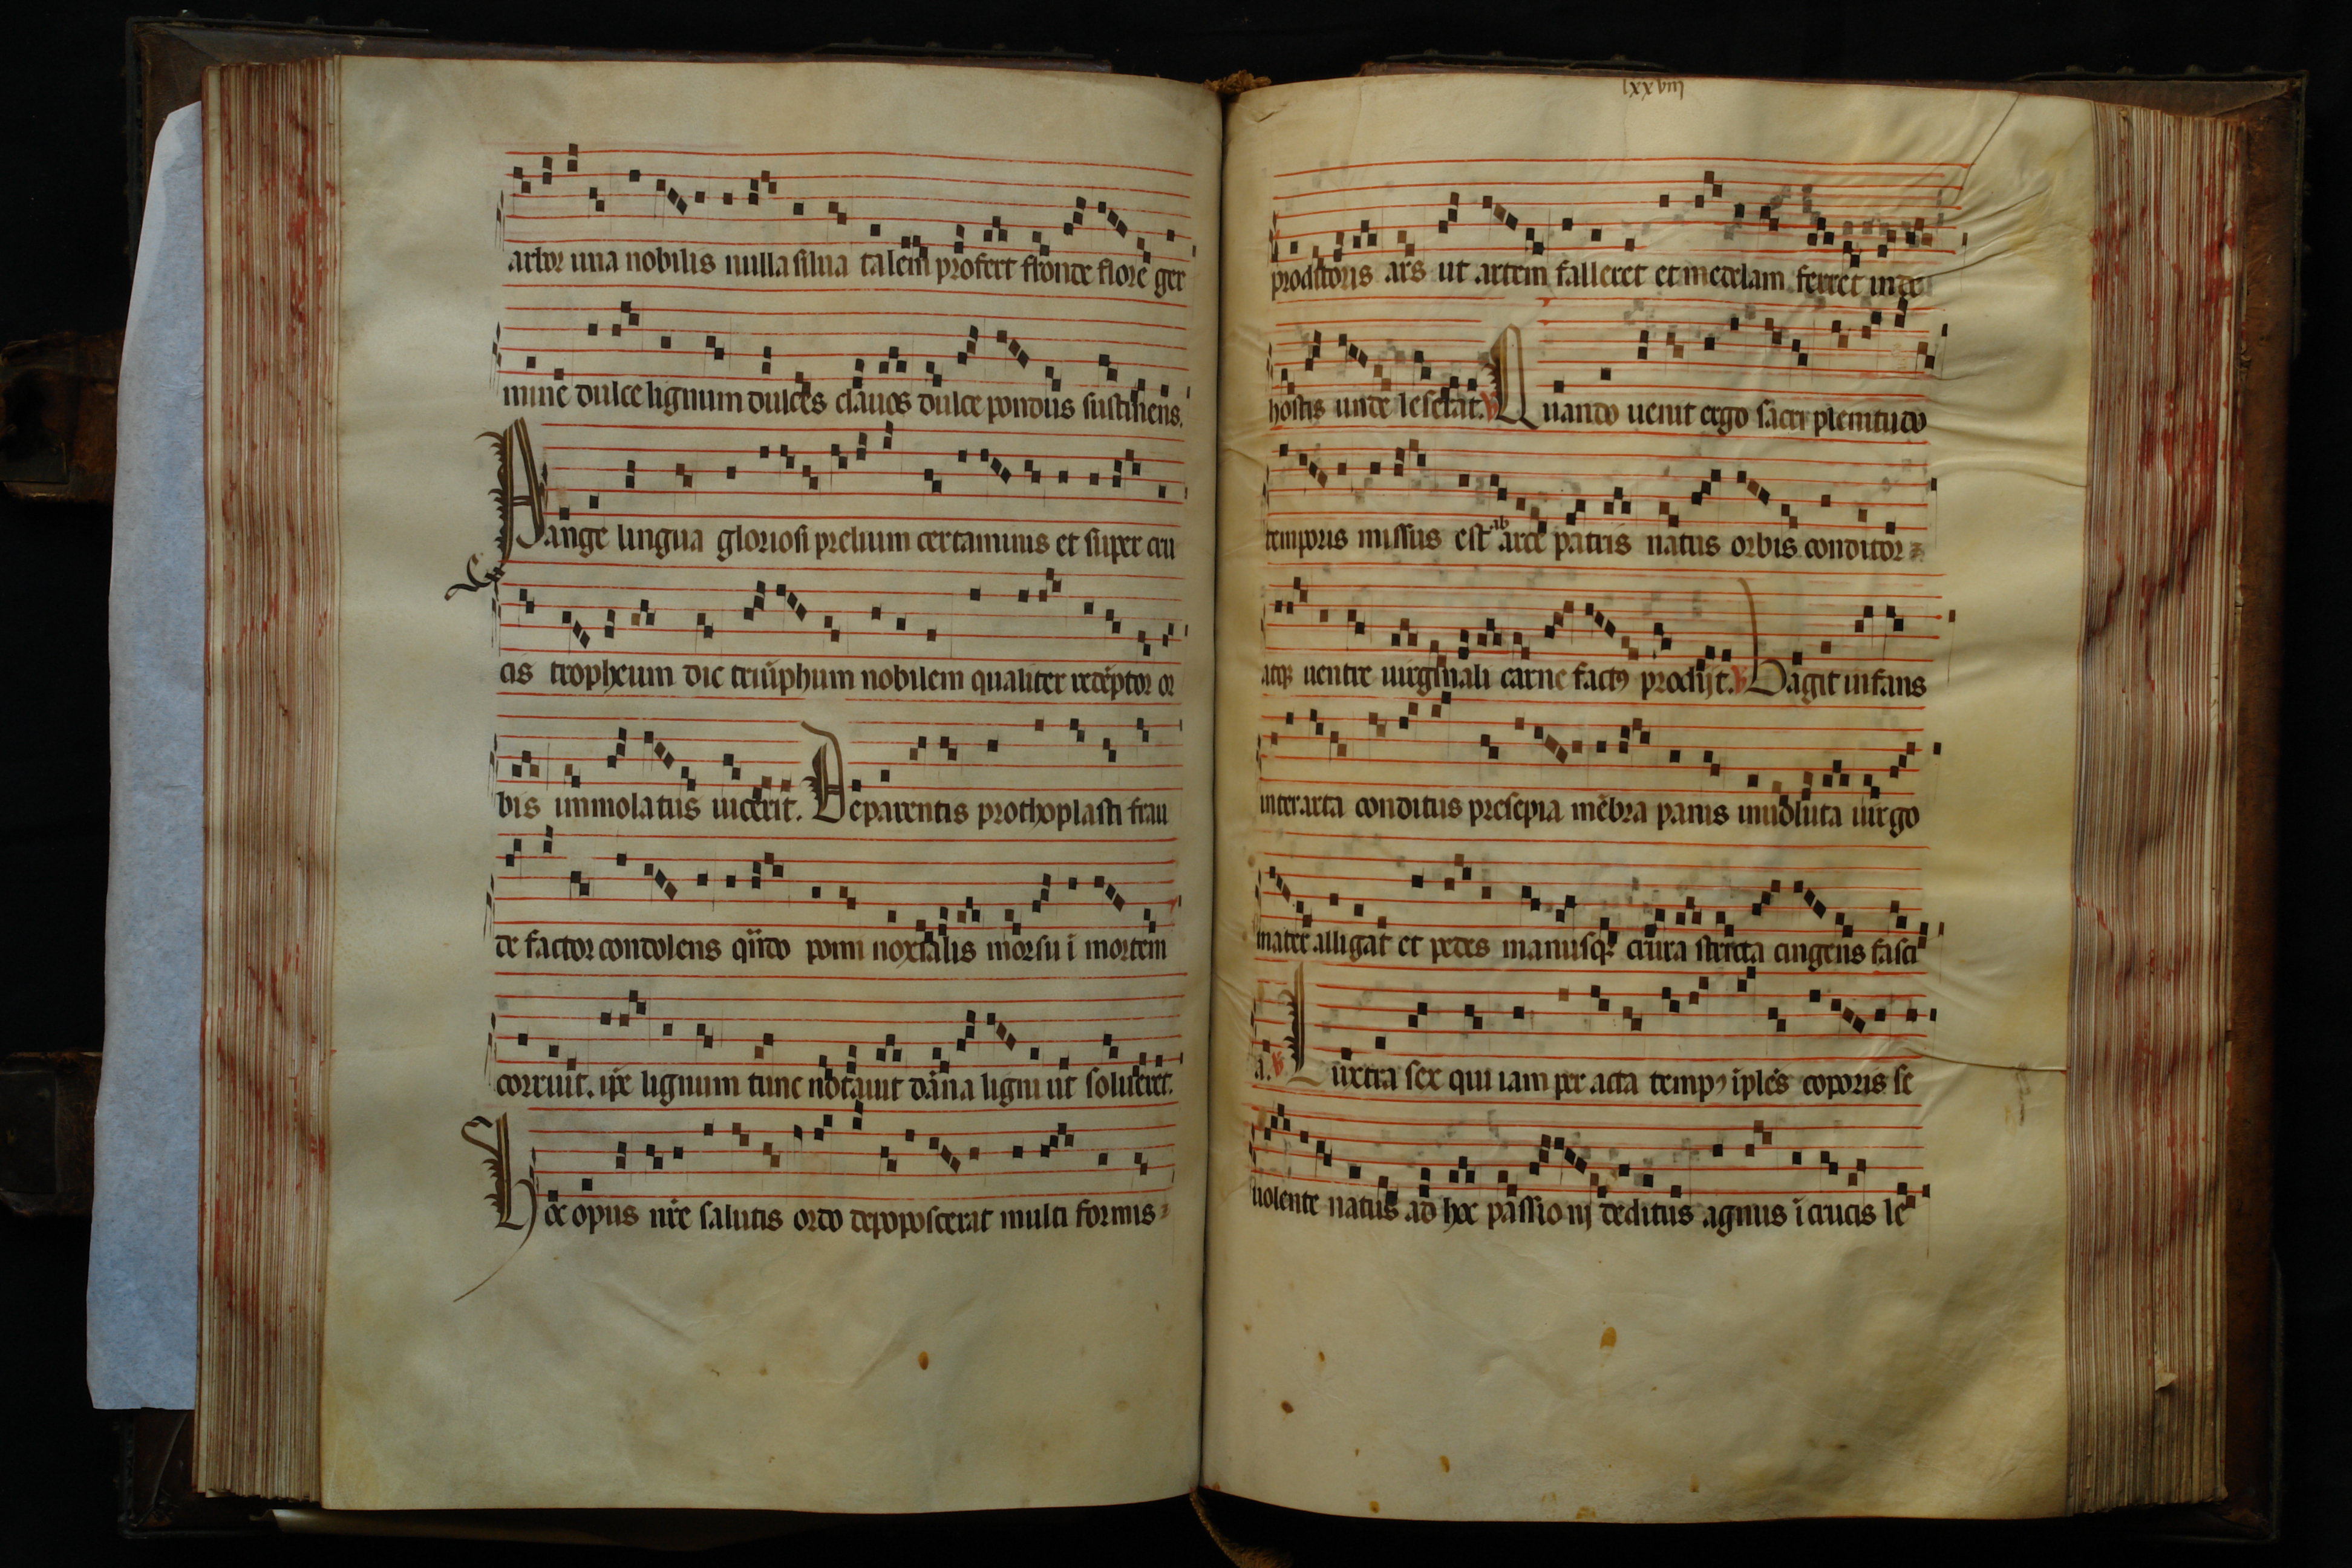 arbor una nobilis nulla silua talem profert fronde flore ger
mine dulce lignum dulces clauos dulce pondus sustinens.
Pange lingua gloriosi prelium certaminis et super cru
cis tropheum dic triūphum nobilem qualiter redēptor or
bis immolatus uicerit. De parentis prothoplasti frau
de factor condolens qn̄do pomi noxialis morsu ī mortem
corruit. ip̄e lignum tunc notauit dāna ligni ut solueret.
Hoc opus nr̄e salutis ordo depoposcerat multi formis
lxxviii
proditoris ars ut artem falleret et medelam ferret inde
hostis unde leserat. ℣ Quando uenit ergo sacri plenitudo
temporis missus est ab arce patris natus orbis conditor
atq; uentre uirginali carne factꝰ prodijt. ℣ Vagit infans
inter arta conditus presepia mēbra pannis inuoluta uirgo
mater alligat et pedes manusq; crura stricta cingens fasci
a. ℣ Lustra sex qui iam per acta tempꝰ īplēs coporis se
uolente natus ad hoc passioni deditus agnus ī crucis le